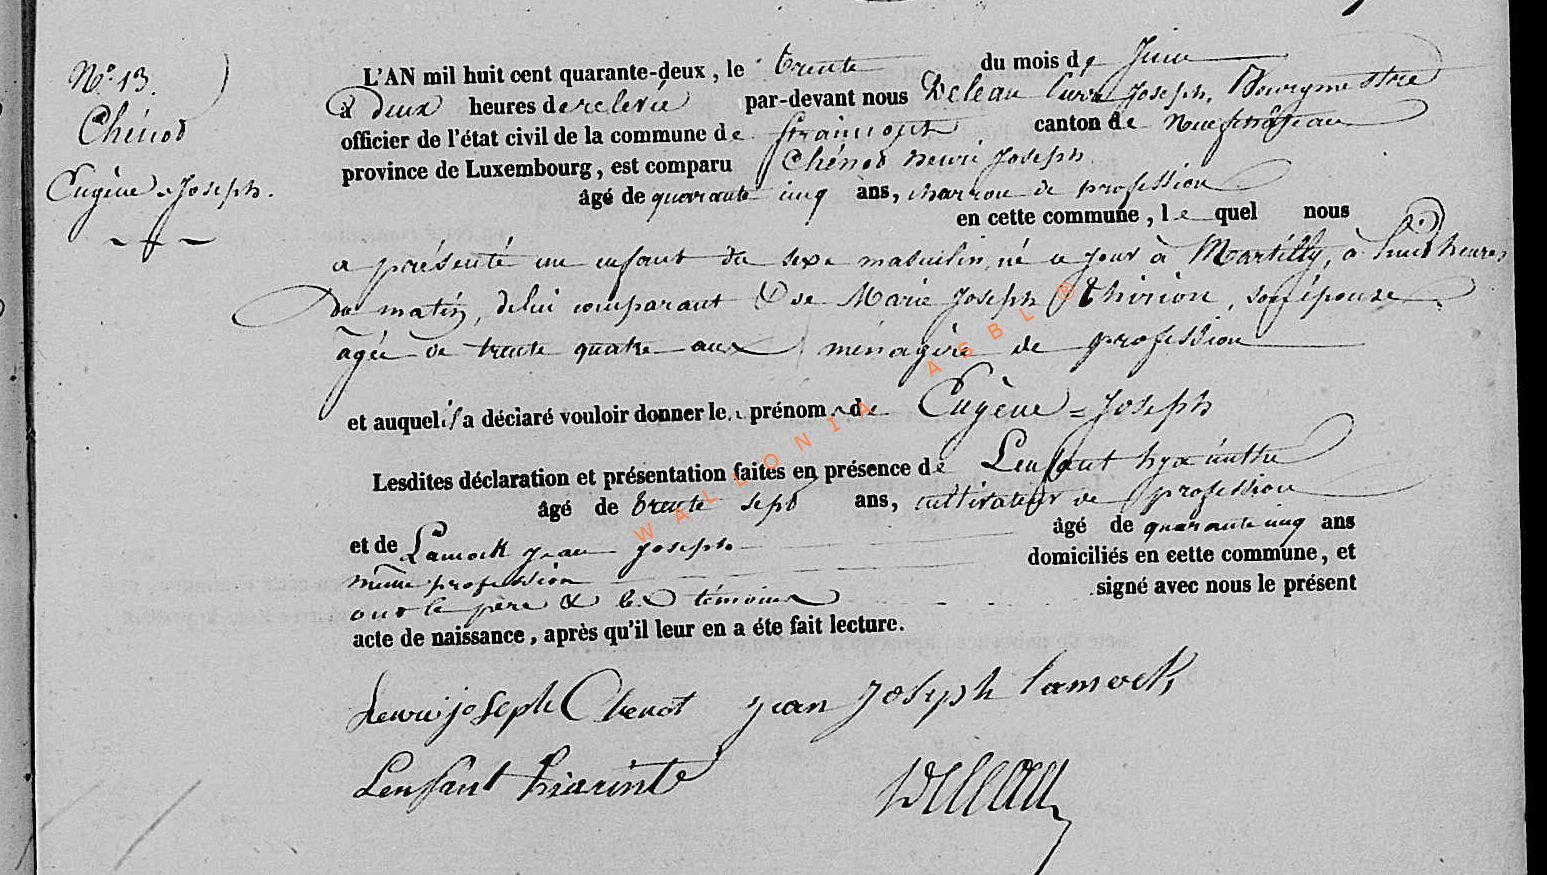 N.° 13.
Chénot
Eugène=Joseph.
L'AN mil huit cent quarante-deux, le trente du mois de Juin
à deux heures de relevée par-devant nous Deleau Joseph, Bourgmestre
officier de l'état civil de la commune de Straimont canton de Neufchâteau
province de Luxembourg, est comparu Chénot henri Joseph
âgé de quarante cinq ans, charron de profession
en cette commune, lequel nous
a présenté un enfant du sexe masculin, né ce jour à Martilly, à huit heures
du matin, de lui comparant & de Marie Joseph Thirion, son épouse
agée de trente quatre ans ménagère de profession
et auquel il a déclaré vouloir donner le prénom de Eugène=Joseph
Lesdites déclaration et présentation faites en présence de Lenfant hyacinthe
âgé de trente sept ans, cultivateur de profession
et de Lamock jean joseph âgé de quarante cinq ans
même profession domiciliés en cette commune, et
ont le père & les témoins signé avec nous le présent
acte de naissance, après qu'il leur en a éte fait lecture.
henri joseph Chenot jean joseph lamock
Lenfant hiacinte Deleau
WALLONIA ASBL ®